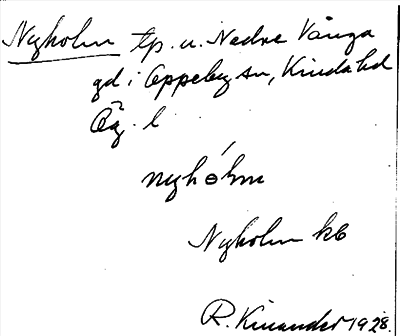 Nyholm tp. u. Nedre Vånga
gd i Oppeby sn, Kinda hd
Ög. l
nyhólm
Nyholm kb
R. Kinander 1928.